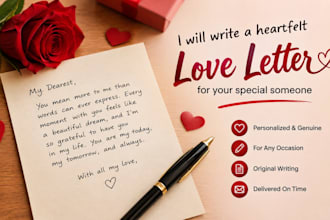 My Dearest,
You mean more to me than
words can ever express. Every
moment with you feels like
a beautiful dream, and I'm
so grateful to have you
in my life. You are my today,
my tomorrow, and always.
With all my love,
I will write a heartfelt
Love Letter
for your special someone
Personalized & Genuine
For Any Occasion
Original Writing
Delivered On Time